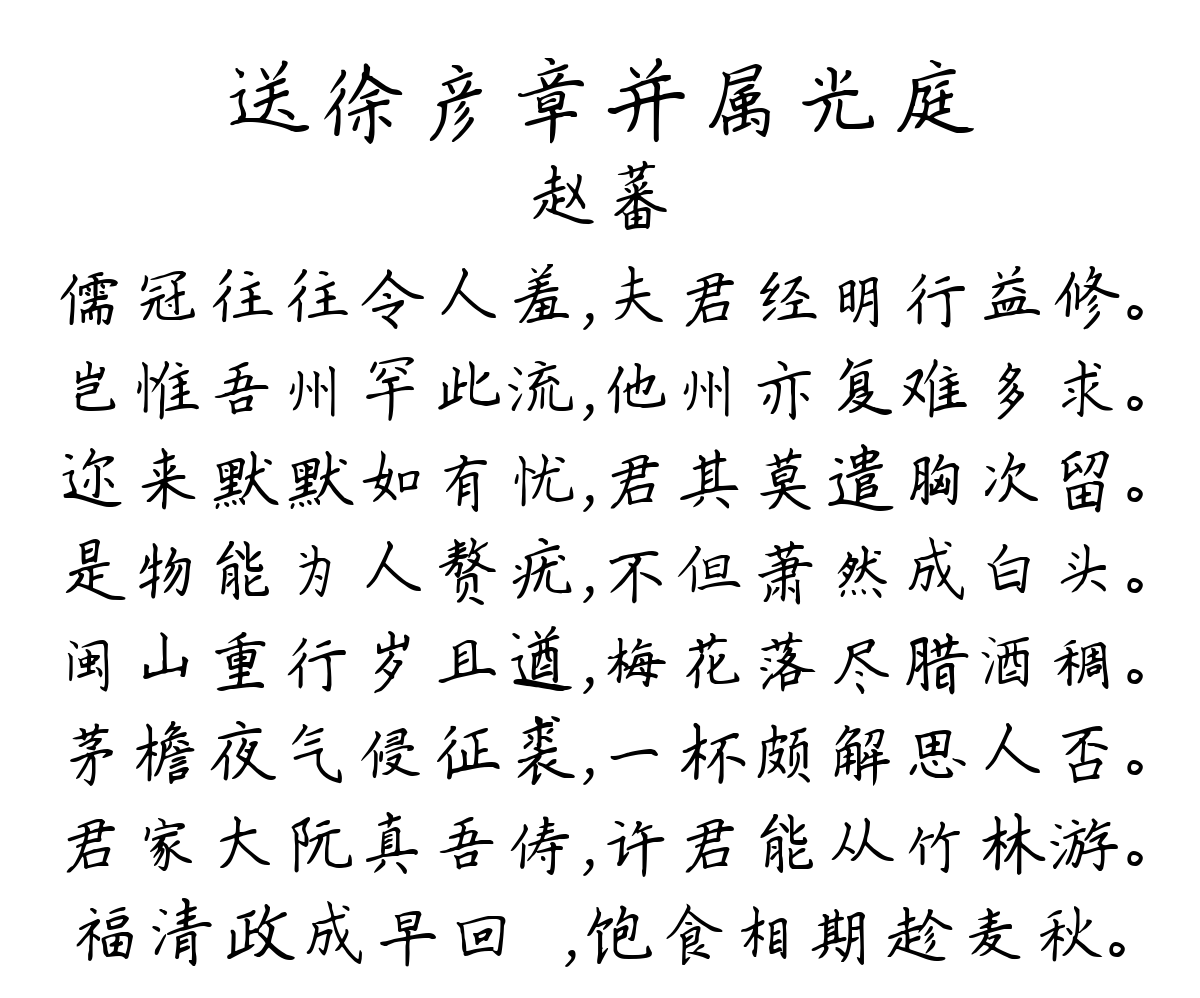 送徐彦章并属光庭
赵蕃
儒冠往往令人羞,夫君经明行益修。
岂惟吾州罕此流,他州亦复难多求。
迩来默默如有忧,君其莫遣胸次留。
是物能为人赘疣,不但萧然成白头。
闽山重行岁且遒,梅花落尽腊酒稠。
茅檐夜气侵征裘,一杯颇解思人否。
君家大阮真吾俦,许君能从竹林游。
福清政成早回 ,饱食相期趁麦秋。